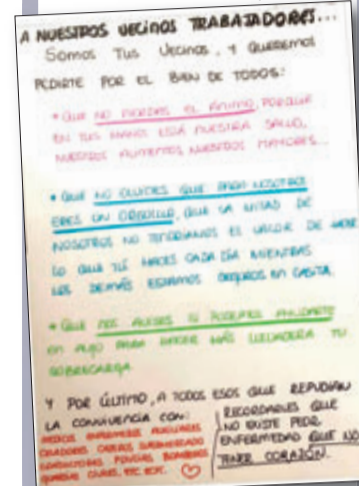 A NUESTROS VECINOS TRABAJADORES...
SOMOS TUS VECINOS, Y QUEREMOS
PEDIRTE POR EL BIEN DE TODOS:
* QUE NO PIERDAS EL ÁNIMO, PORQUE
EN TUS MANOS ESTÁ NUESTRA SALUD,
NUESTROS ALIMENTOS, NUESTROS MAYORES...
* QUE NO OLVIDES QUE PARA NOSOTROS
ERES UN ORGULLO, QUE LA MITAD DE
NOSOTROS NO TENDRÍAMOS EL VALOR DE HACER
LO QUE TÚ HACES CADA DÍA MIENTRAS
LOS DEMÁS ESTAMOS SEGUROS EN CASITA.
* QUE NOS AVISES SI PODEMOS AYUDARTE
EN ALGO PARA HACER MÁS LLEVADERA TU
SOBRECARGA.
Y POR ÚLTIMO, A TODOS ESOS QUE REPUDIAN
LA CONVIVENCIA CON:
MÉDICOS ENFERMEROS AUXILIARES
CELADORES CAJERAS SUPERMERCADO
CONDUCTORES POLICÍAS BOMBEROS
GUARDIAS CIVILES, ETC, ETC.
RECORDARLES QUE
NO EXISTE PEOR
ENFERMEDAD QUE NO
TENER CORAZÓN.